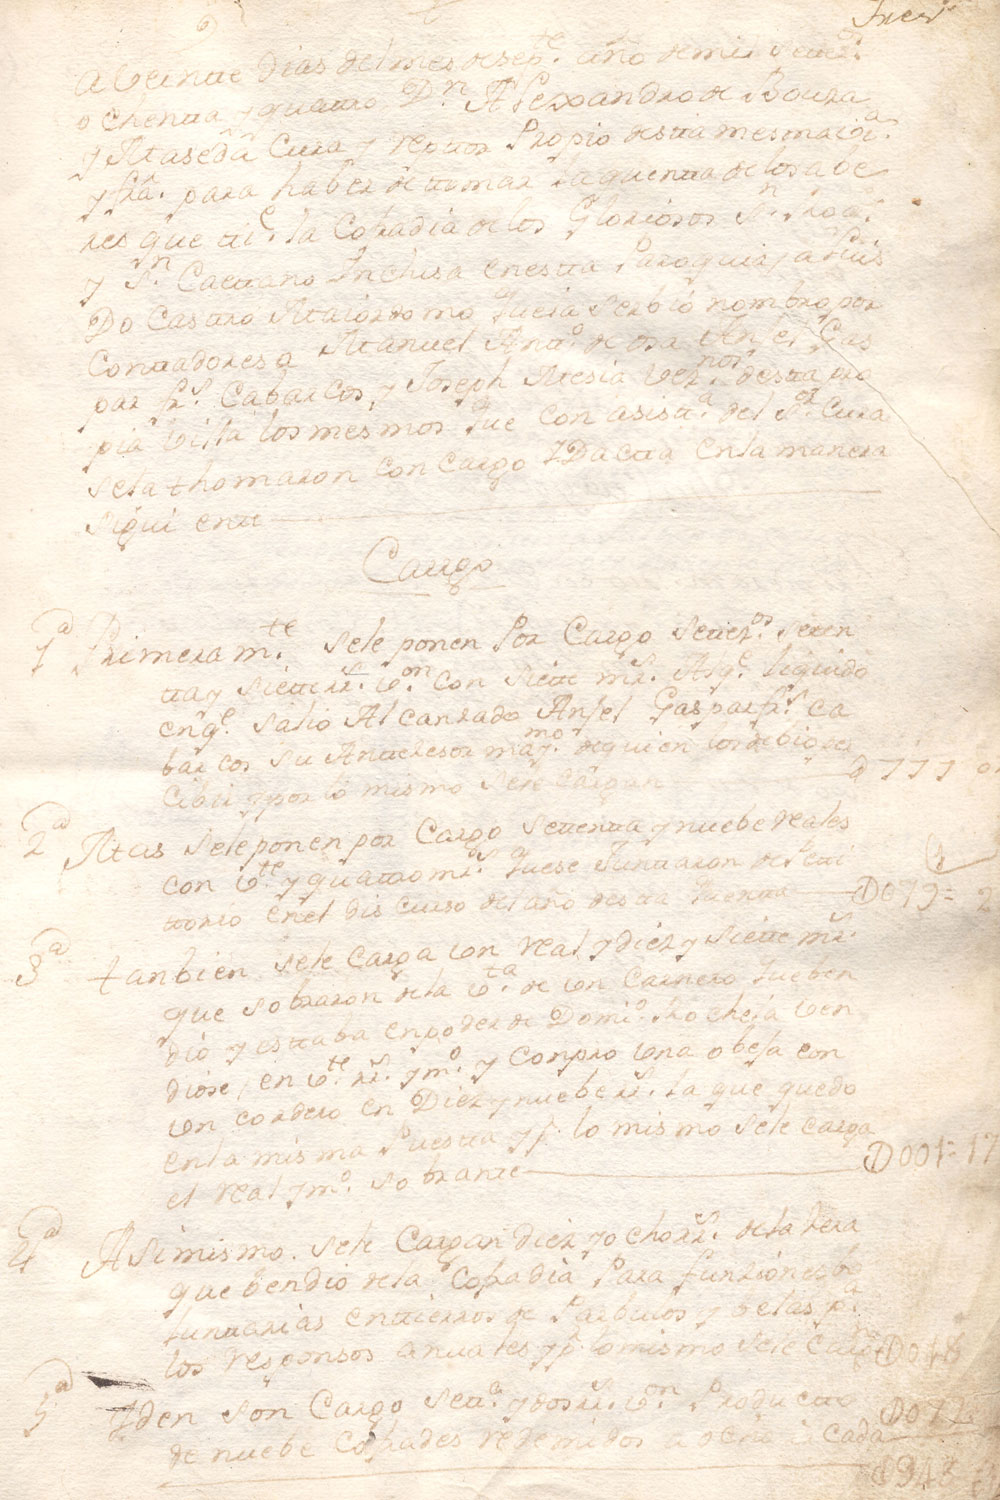 A Veinte dias del mes de septe. año de mil setezs.
ochenta y quatro Dn. Alexandro de Bouza
y Ataseda Cura y rector Propio desta mesma
y para haber de tomar la quenta de los abe
res que tiee. la Cofradia de los Gloriosos Sn.
y Sn. Caetano Inclusa en esta Paroquia, a Luis
Do Castro Maiordomo que la serbio nombro por
Contadores a Manuel Anto. de Anjel Gas
par frs. Cabarcos y Joseph Mesia veznos. desta pro
pia vista los mesmos que con asista. del Sor. Cura
se la thomaron con cargo y Data en la manera
siguiente
Cargo
1a Primeramte. se le ponen Por Cargo setezos. seten
ta y siette rrs. von. con siete mrs. Alqe. liquido
en qe. salio Alcanzado Anjel Gaspar frs. Ca
barcos su Antecesor maymo. de quien los debio re
cibir y por lo mismo se le cargan D777
2a Mas se le ponen por Cargo setenta y nuebe reales
con vte. y quatro mrs. que se juntaron de Peti
torio en el discurso del año desta quenta D079=2
3a tanbien se le carga un real y diez y siette mrs.
que sobraron de la vta. de un Carnero que ben
dio y estaba en poder de Domio. ven
diose, en vte. rrs. y mo. y Conpro una obeja con
un cordero en Diez y nuebe rrs. la que quedo
en la misma Puesta y pr. lo mismo se le carga
el real y mo. sobrante D001=17
4a Asimismo se le Cargan diez y ocho rrs. de la zera
que bendio de la Cofadia Para funziones bo
luntarias entierros de Parbulos y belas pa.
los responsos anuales y pr. lo mismo se le cargan D018
5a Yden son Cargo seta. y dos rrs. von. Producto
de nuebe Cofrades redemidos a ocho cada D072
8948